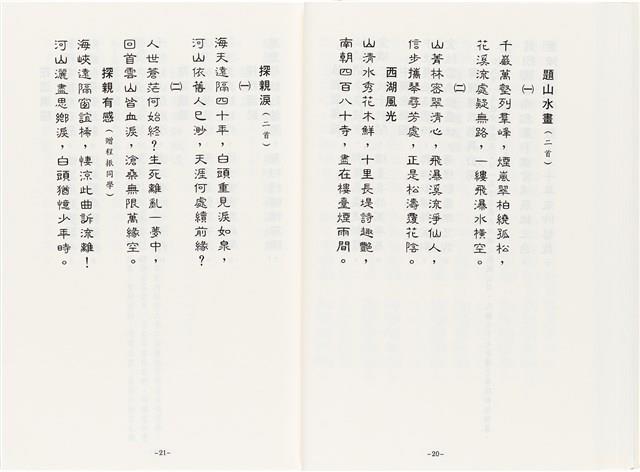 題山水畫（二首）
㈠
千巖萬壑列羣峰，煙嵐翠柏繞孤松，
花溪流處疑無路，一縷飛瀑水橫空。
㈡
山菁林密翠清心，飛瀑溪流淨仙人，
信步攜琴尋芳處，正是松濤覆花陰。
西湖風光
山清水秀花木鮮，十里長堤詩趣艷，
南朝四百八十寺，盡在樓臺煙雨間。
-20-
探親淚（二首）
㈠
海天遠隔四十年，白頭重見淚如泉，
河山依舊人已渺，天涯何處續前緣？
㈡
人世蒼茫何始終？生死離亂一夢中，
回首雲山皆血淚，滄桑無限萬緣空。
探親有感（贈程振同學）
海峽遠隔窗誼稀，悽涼此曲訴流離！
河山灑盡思鄉淚，白頭猶憶少年時。
-21-